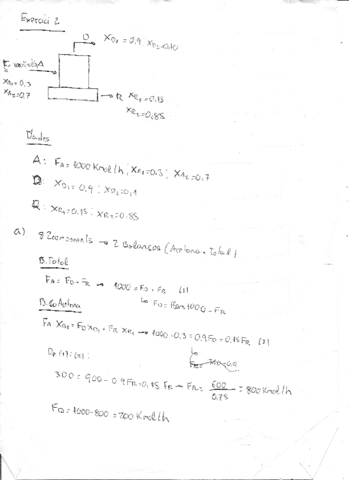 Exercici 2
D
XD1 = 0.9 ; XD2 = 0.10
A
XA1 = 0.3
XA2 = 0.7
R XR1 = 0.15
XR2 = 0.85
Dades
A: FA = 1000 Kmol/h ; XA1 = 0.3 ; XA2 = 0.7
D: XD1 = 0.9 ; XD2 = 0.1
R: XR1 = 0.15 ; XR2 = 0.85
a) 2 components → 2 Balanços (Acetona + Total)
B. Total
FA = FD + FR → 1000 = FD + FR (1)
↳ FD = 1000 - FR
B. Acetona
FA XA1 = FD XD1 + FR XR1 → 1000·0.3 = 0.9FD + 0.15FR (2)
De (1) i (2):
300 = 900 - 0.9FR + 0.15FR → FR = 600 / 0.75 = 800 Kmol/h
FD = 1000 - 800 = 200 Kmol/h